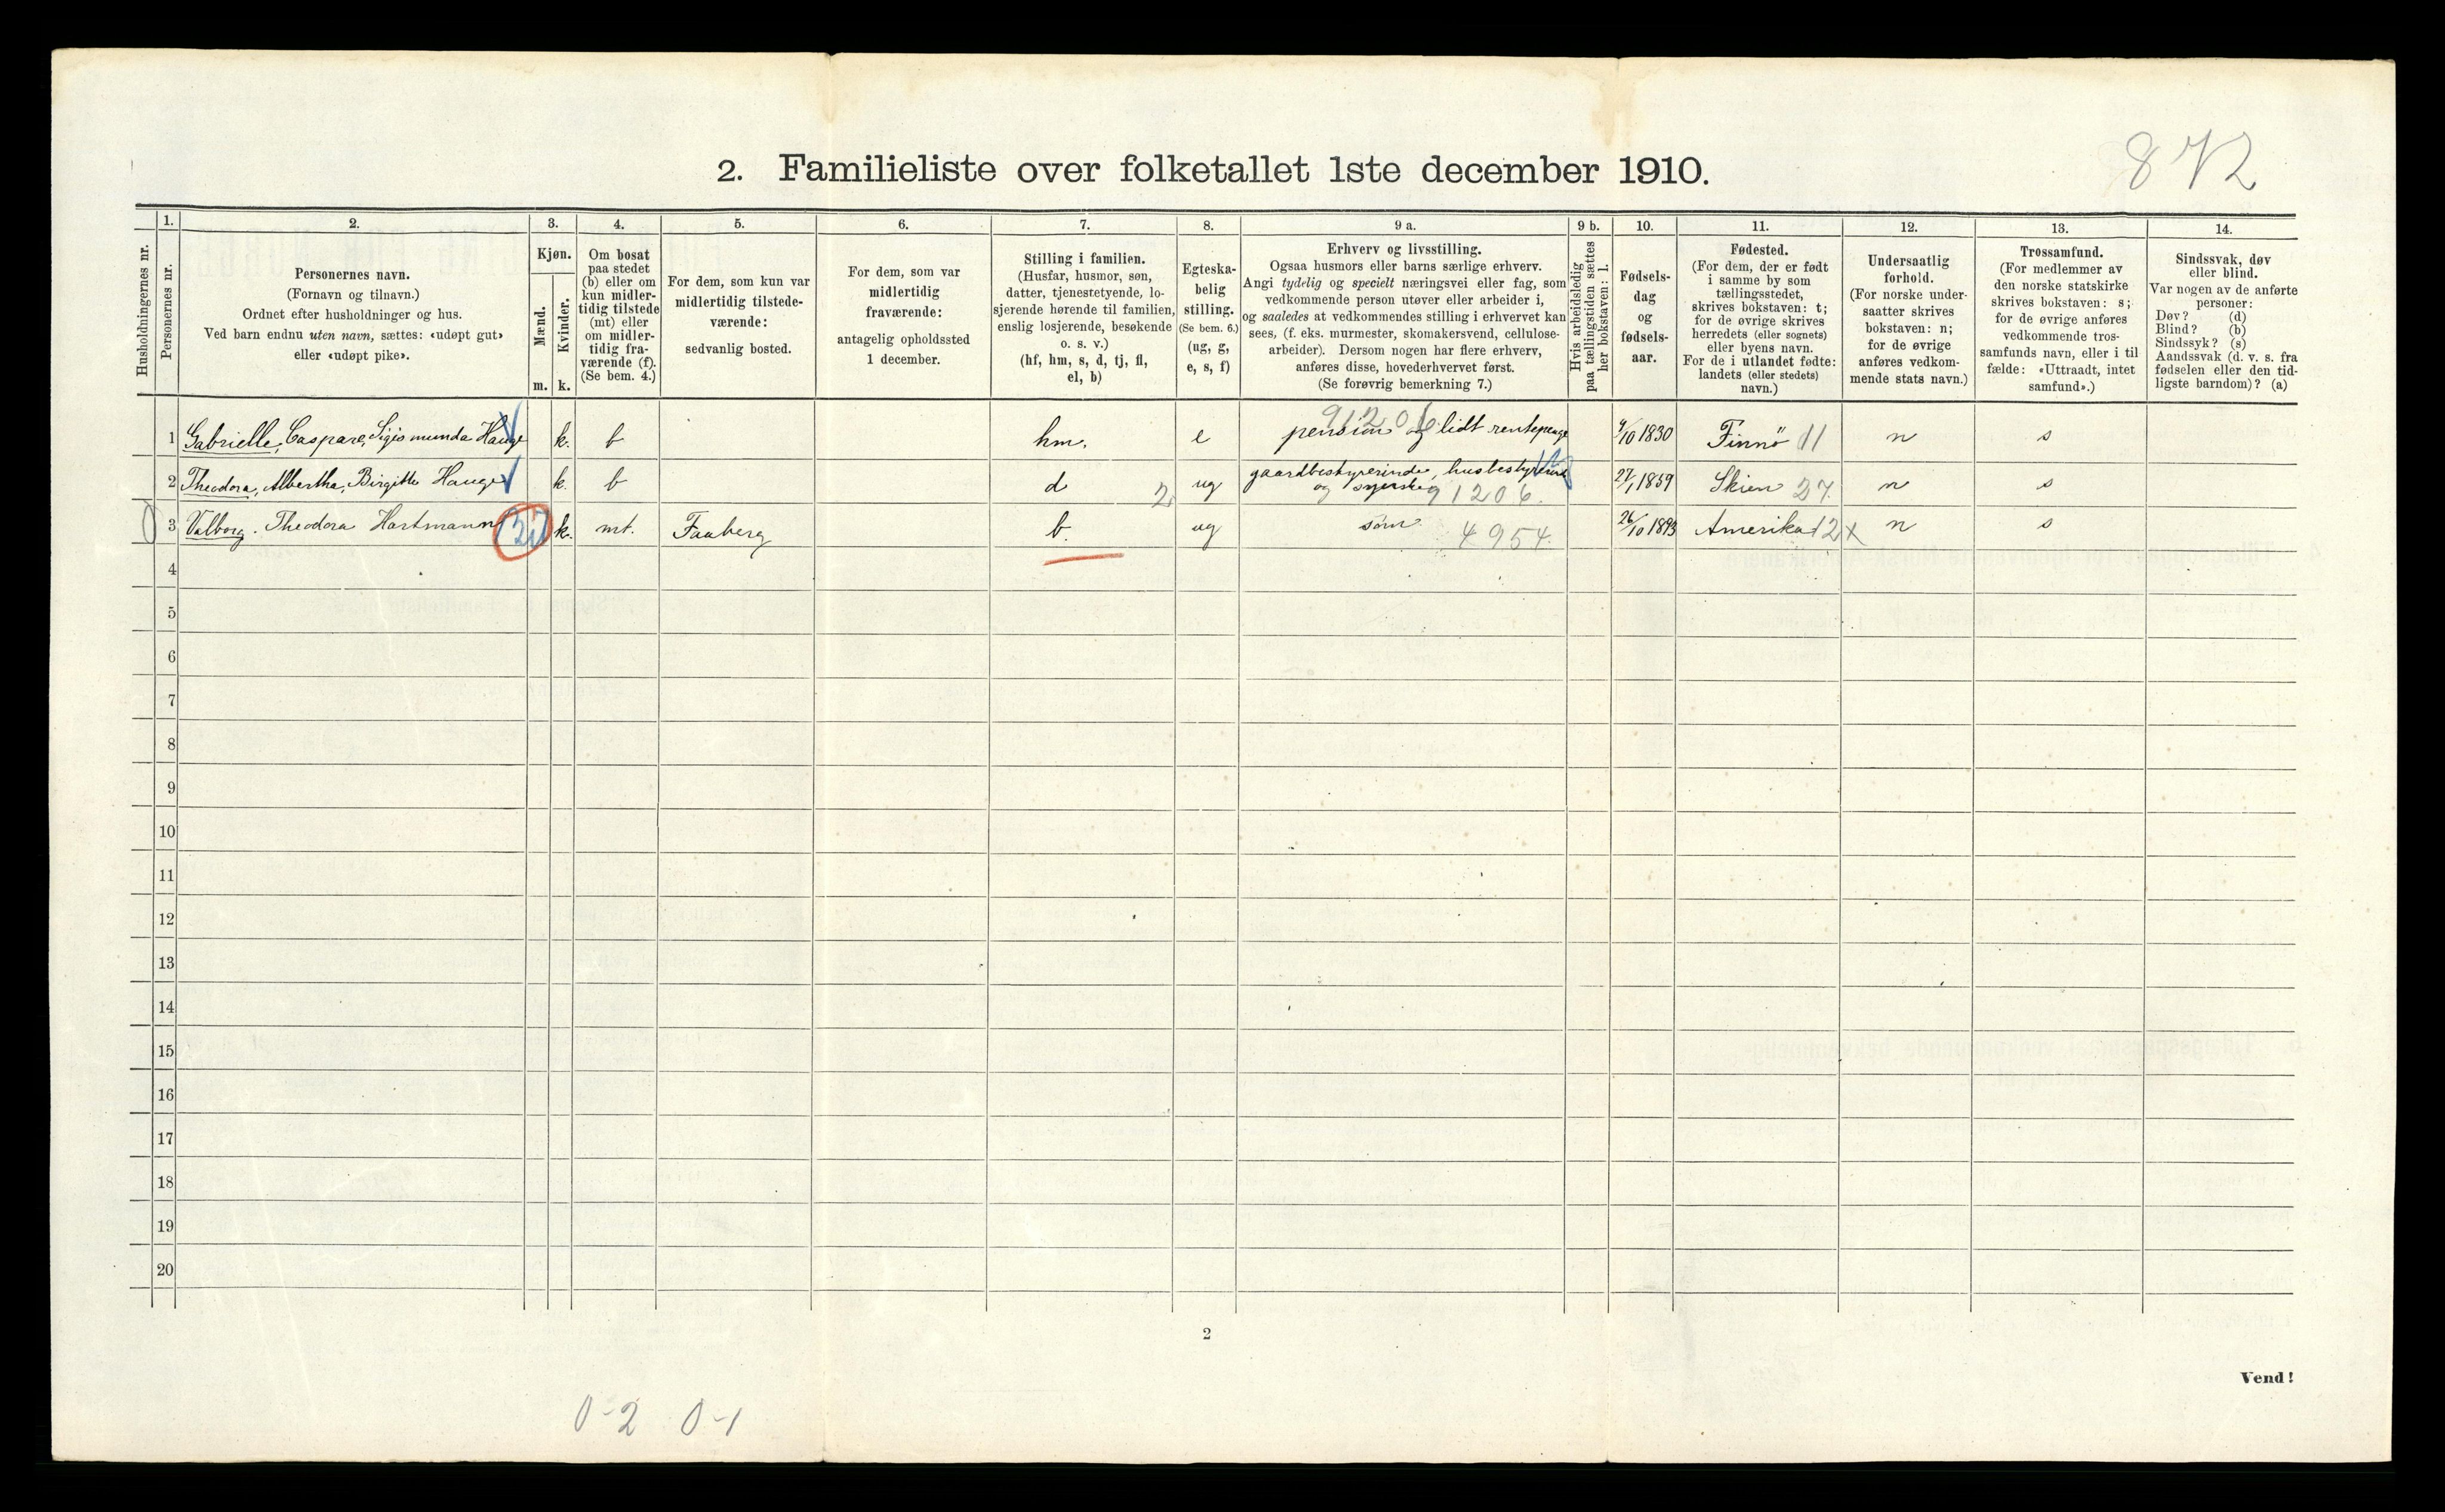 872
2. Familieliste over folketallet 1ste december 1910.
Husholdningernes nr.
1.
Personernes nr.
2.
Personernes navn.
(Fornavn og tilnavn.)
Ordnet efter husholdninger og hus.
Ved barn endnu uten navn, sættes: «udøpt gut»
eller «udøpt pike».
3.
Kjøn.
Mænd.
Kvinder.
m. k.
4.
Om bosat
paa stedet
(b) eller om
kun midler-
tidig tilstede
(mt) eller
om midler-
tidig fra-
værende (f).
(Se bem. 4.)
5.
For dem, som kun var
midlertidig tilstede-
værende:
sedvanlig bosted.
6.
For dem, som var
midlertidig
fraværende:
antagelig opholdssted
1 december.
7.
Stilling i familien.
(Husfar, husmor, søn,
datter, tjenestetyende, lo-
sjerende hørende til familien,
enslig losjerende, besøkende
o. s. v.)
(hf, hm, s, d, tj, fl,
el, b)
8.
Egteska-
belig
stilling.
(Se bem. 6.)
(ug, g,
e, s, f)
9 a.
Erhverv og livsstilling.
Ogsaa husmors eller barns særlige erhverv.
Angi tydelig og specielt næringsvei eller fag, som
vedkommende person utøver eller arbeider i,
og saaledes at vedkommendes stilling i erhvervet kan
sees, (f. eks. murmester, skomakersvend, cellulose-
arbeider). Dersom nogen har flere erhverv,
anføres disse, hovederhvervet først.
(Se forøvrig bemerkning 7.)
9 b.
Hvis arbeidsledig
paa tællingstiden sættes
her bokstaven: l.
10.
Fødsels-
dag
og
fødsels-
aar.
11.
Fødested.
(For dem, der er født
i samme by som
tællingsstedet,
skrives bokstaven: t;
for de øvrige skrives
herredets (eller sognets)
eller byens navn.
For de i utlandet fødte:
landets (eller stedets)
navn.)
12.
Undersaatlig
forhold.
(For norske under-
saatter skrives
bokstaven: n;
for de øvrige
anføres vedkom-
mende stats navn.)
13.
Trossamfund.
(For medlemmer av
den norske statskirke
skrives bokstaven: s;
for de øvrige anføres
vedkommende tros-
samfunds navn, eller i til
fælde: «Uttraadt, intet
samfund».)
14.
Sindssvak, døv
eller blind.
Var nogen av de anførte
personer:
Døv? (d)
Blind? (b)
Sindssyk? (s)
Aandssvak (d. v. s. fra
fødselen eller den tid-
ligste barndom)? (a)
91206
1 Gabrielle, Caspare, Sigismunda Hauge k. b hm. e pension og lidt rentepenge 9/10 1830 Finnö 11 n s
2 Theodora, Albertha, Birgitte Hauge k. b d 2 ug gaardbestyrerinde, husbestyrerinde 27/1 1859 Skien 27 n s
og syerske 91206.
3 Valborg. Theodora Hartmann k. mt. Faaberg b. ug søm 4954. 26/10 1893 Amerika 12 x n s
4
5
6
7
8
9
10
11
12
13
14
15
16
17
18
19
20
2
Vend!
0-2 0-1